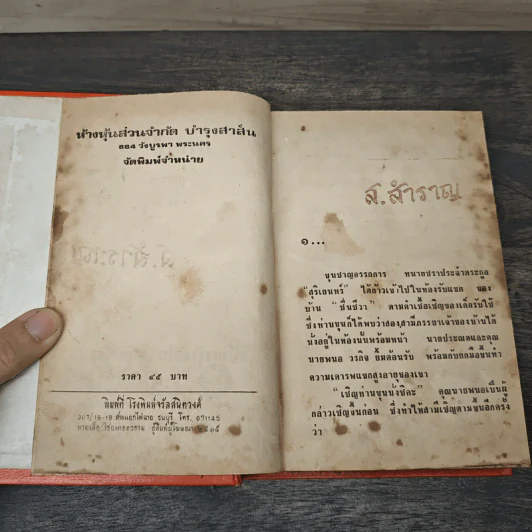 ห้างหุ้นส่วนจำกัด บำรุงสาส์น
884 วังบูรพา พระนคร
จัดพิมพ์จำหน่าย
ราคา ๔๕ บาท
พิมพ์ที่ โรงพิมพ์จรัลสนิทวงศ์
307/18-19
ธนบุรี โทร. 671145
ผู้พิมพ์ผู้โฆษณา
ส. สำราญ
๑...
ขุนชาญอรรถการ ทนายชราประจำตระกูล
"สุริเยนทร์" ได้ก้าวเข้าไปในห้องรับแขก ของ
บ้าน "ชื่นชีวา" ตามคำเชื้อเชิญของเด็กรับใช้
ซึ่งท่านขุนก็ได้พบว่าสองสามีภรรยาเจ้าของบ้านได้
นั่งอยู่ในห้องนั้นพร้อมหน้า
นายพนอ วรกิจ ยิ้มต้อนรับ พร้อมกับยกมือขึ้นทำ
ความเคารพแขกสูงอายุของเขา
"เชิญท่านขุนนั่งซิคะ" คุณนายพนอเป็นผู้
กล่าวเชิญขึ้นก่อน ซึ่งทำให้สามีเชิญตามขึ้นอีกครั้ง
ว่า